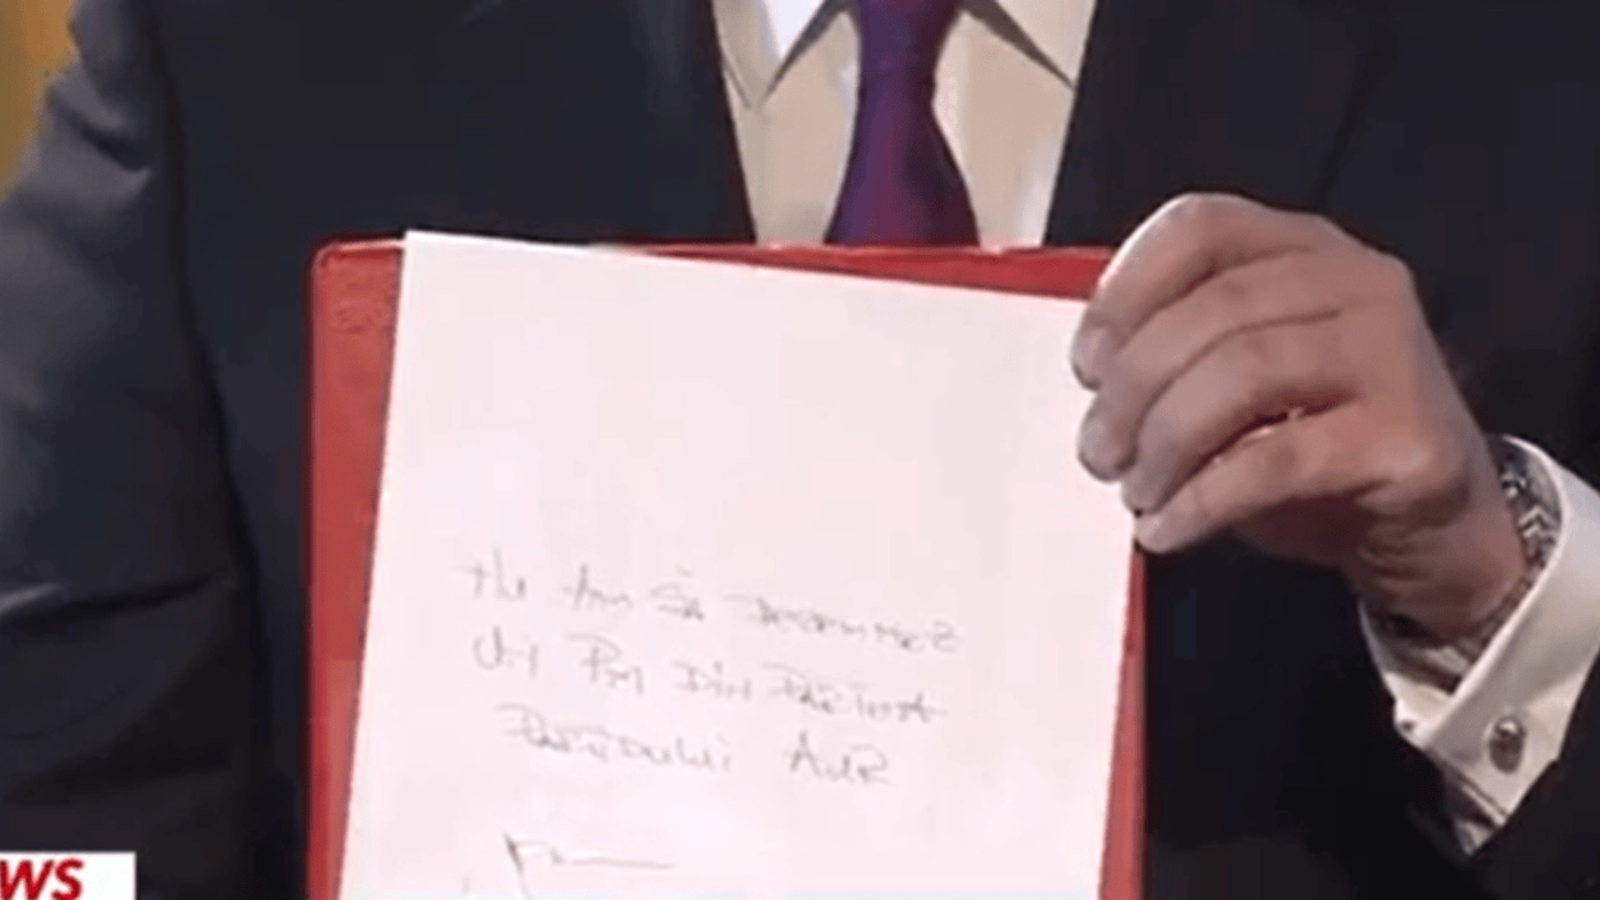 Nu Am Să DESEMNEZ
UN PM DIN PARTEA
PARTIDULUI AUR
WS